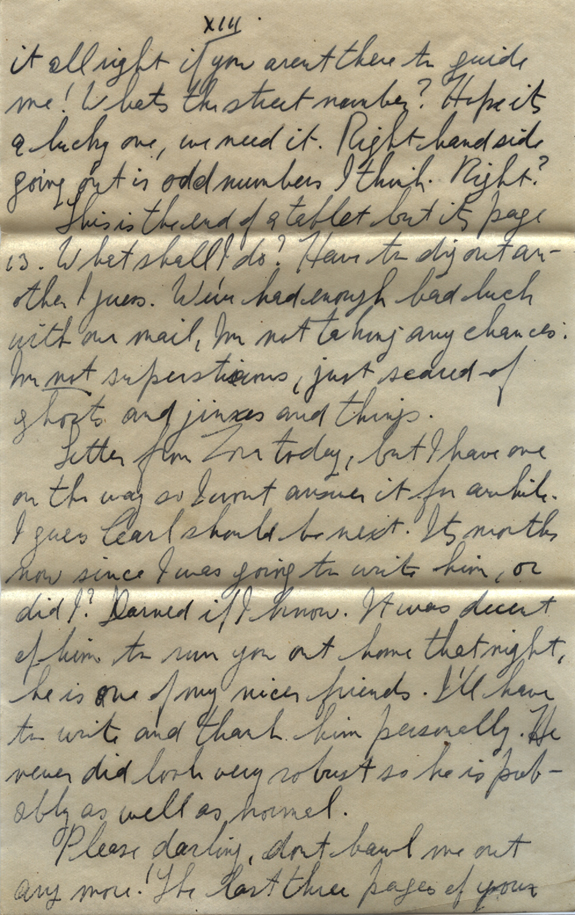 XIII.
it all right if you arent there to guide
me! Whats the street number? Hope its
a lucky one, we need it. Right hand side
going out is odd numbers I think. Right?
This is the end of a tablet but its page
13. What shall I do? Have to dig out an-
other I guess. We've had enough bad luck
with our mail, Im not taking any chances.
Im not superstitious, just scared of
ghosts and jinxes and things.
Letter from today, but I have one
on the way so I wont answer it for awhile.
I guess Pearl should be next. Its months
now since I was going to write him, or
did I? Darned if I know. It was decent
of him to run you out home that night,
he is one of my nicer friends. I'll have
to write and thank him personally. He
never did look very robust so he is prob-
ably as well as normal.
Please darling, dont bawl me out
any more! The last three pages of your